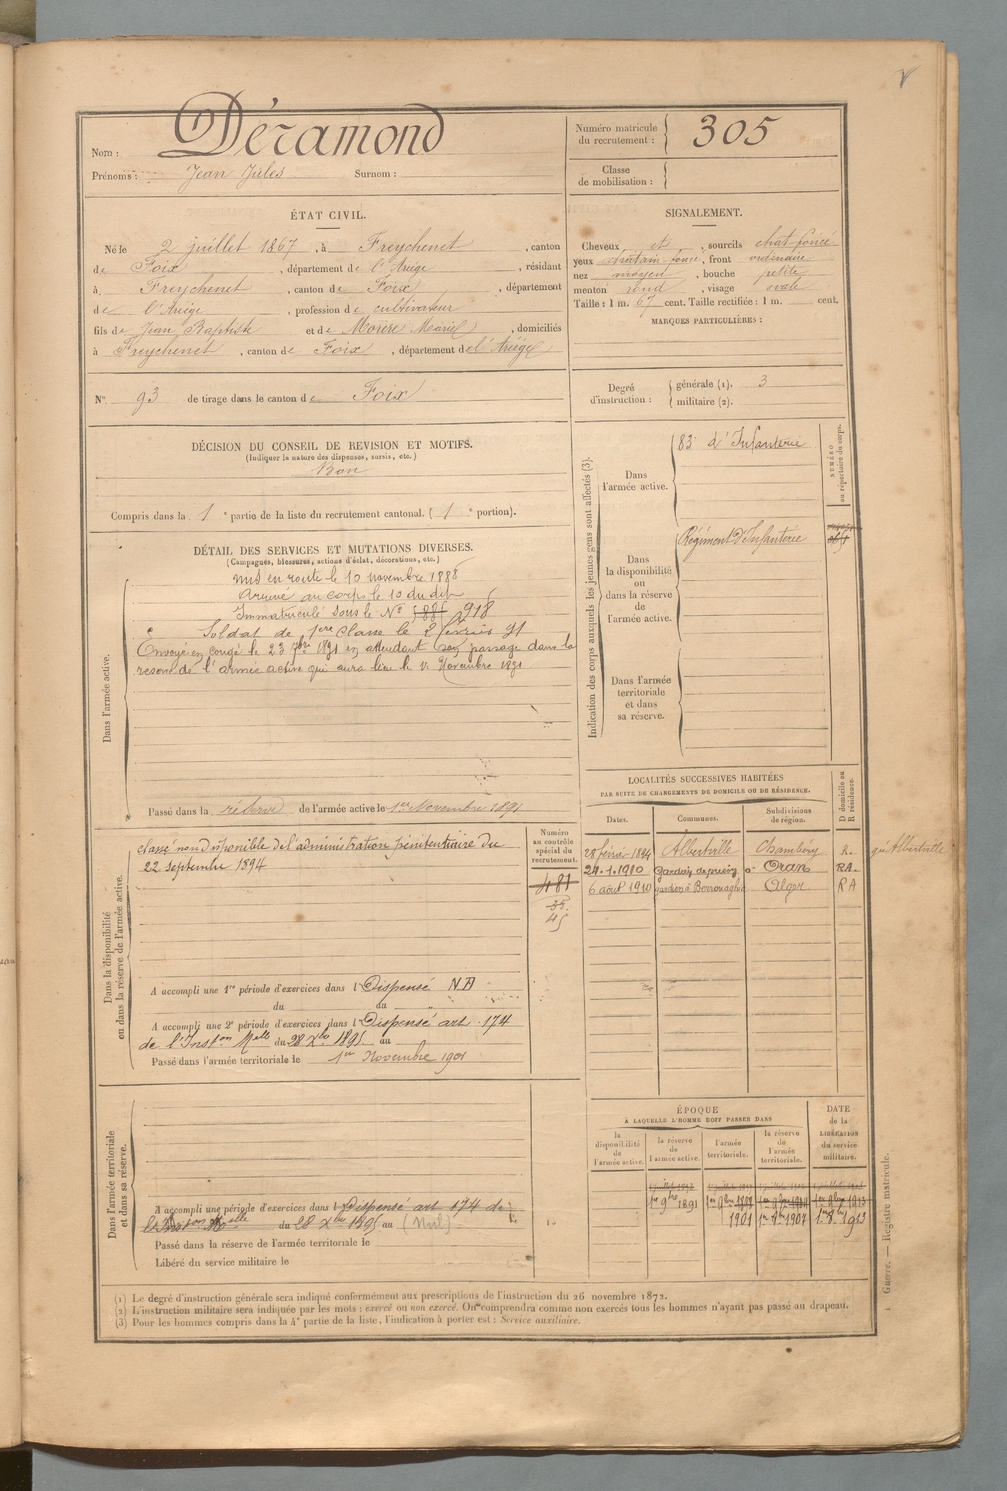 Nom : Déramond
Prénoms : Jean Jules Surnom :
Numéro matricule du recrutement : 305
Classe de mobilisation :
ÉTAT CIVIL.
Né le 2 juillet 1867, à Freychenet, canton
de Foix, département de l'Ariège, résidant
à Freychenet, canton de Foix, département
de l'Ariège, profession de cultivateur
fils de Jean Baptiste et de Marie, domiciliés
à Freychenet, canton de Foix, département de l'Ariège
SIGNALEMENT.
Cheveux et, sourcils chat foncé
yeux chatain foncé, front ordinaire
nez moyen, bouche petite
menton rond, visage ovale
Taille : 1 m. 67 cent. Taille rectifiée : 1 m. cent.
MARQUES PARTICULIÈRES :
N° 93 de tirage dans le canton de Foix
Degré d'instruction : générale (1). 3
militaire (2).
DÉCISION DU CONSEIL DE REVISION ET MOTIFS.
(Indiquer la nature des dispenses, sursis, etc.)
Bon
Compris dans la 1e partie de la liste du recrutement cantonal. (1e portion).
DÉTAIL DES SERVICES ET MUTATIONS DIVERSES.
(Campagnes, blessures, actions d'éclat, décorations, etc.)
Dans l'armée active.
Mis en route le 10 novembre 1888
Arrivé au corps le 10 du dit
Immatriculé sous le N° 918
Soldat de 1ere classe le 2 février 91
Envoyé en congé le 23 7bre 1891 en attendant son passage dans la
reserve de l'armée active qui aura lieu le 1 Novembre 1891
Passé dans la réserve de l'armée active le 1er Novembre 1891
Indication des corps auxquels les jeunes gens sont affectés (3).
Dans l'armée active. 83 d'Infanterie
Dans la disponibilité ou dans la réserve de l'armée active. Régiment d'Infanterie
Dans l'armée territoriale et dans sa réserve.
NUMÉRO au répertoire du corps.
LOCALITÉS SUCCESSIVES HABITÉES
PAR SUITE DE CHANGEMENTS DE DOMICILE OU DE RÉSIDENCE.
Dates. Communes. Subdivisions de région. D domicile ou R résidence.
28 février 1894 Albertville Chambéry R. Albertville
24.1.1910 Gardien de prison à Oran RA.
6 août 1910 gardien à Berrouaghia Alger RA
Dans la disponibilité ou dans la réserve de l'armée active.
Numéro au contrôle spécial du recrutement.
481
45
classé non disponible de l'administration pénitentiaire du
22 septembre 1894
A accompli une 1re période d'exercices dans l Dispensé
du au
A accompli une 2e période d'exercices dans l Dispensé art. 174
de l'Inston Melle du 28 Xbre 1895 au
Passé dans l'armée territoriale le 1er Novembre 1901
Dans l'armée territoriale et dans sa réserve.
A accompli une période d'exercices dans l Dispensé art 174 de
l'Inston Melle du 28 Xbre 1895 au (Nul)
Passé dans la réserve de l'armée territoriale le
Libéré du service militaire le
ÉPOQUE
À LAQUELLE L'HOMME DOIT PASSER DANS
DATE de la LIBÉRATION du service militaire.
la disponibilité de l'armée active. la réserve de l'armée active. l'armée territoriale. la réserve de l'armée territoriale.
1er 9bre 1891
1901 1er 9bre 1907 1er 9bre 1913
(1) Le degré d'instruction générale sera indiqué conformément aux prescriptions de l'instruction du 26 novembre 1872.
(2) L'instruction militaire sera indiquée par les mots : exercé ou non exercé. On comprendra comme non exercés tous les hommes n'ayant pas passé au drapeau.
(3) Pour les hommes compris dans la 4e partie de la liste, l'indication à porter est : Service auxiliaire.
Guerre. — Registre matricule.